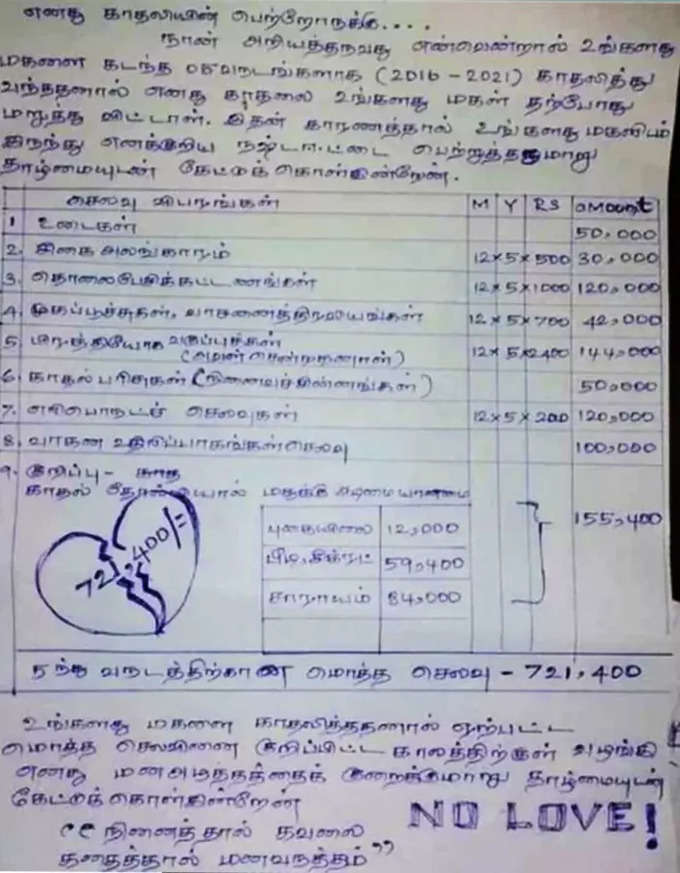 எனது காதலியின் பெற்றோருக்கு....
நான் அறியத்தருவது என்னென்றால் உங்களது
மகளை கடந்த 05வருடங்களாக (2016 - 2021) காதலித்து
வந்ததனால் எனது காதலை உங்களது மகள் தற்போது
மறுத்து விட்டாள். இதன் காரணத்தால் உங்களது மகளிடம்
இருந்து எனக்குரிய நஷ்டஈட்டை பெற்றுத்தருமாறு
தாழ்மையுடன் கேட்டுக்கொள்கின்றேன்.
செலவு விபரங்கள் M Y RS amount
1 உடைகள் 50,000
2. சிகை அலங்காரம் 12×5×500 30,000
3. தொலைபேசிக்கட்டணங்கள் 12×5×1000 120,000
4. முகப்பூச்சுகள், வாசனைத்திரவியங்கள் 12×5×700 42,000
5. பிரத்தியேக வகுப்புக்கள் 12×5×2400 144,000
6. காதல் பரிசுகள் (நினைவுச்சின்னங்கள்) 50,000
7. எரிபொருட் செலவுகள் 12×5×200 120,000
8. வாகன உதிரிப்பாகங்கள் செலவு 100,000
9. குறிப்பு -
காதல் தோல்வியால் மதுக்கு அடிமையானமை
155,400
புகையிலை 12,000
பீடி, சிகரட் 59,400
சாராயம் 84,000
721,400/=
5 ந்து வருடத்திற்கான மொத்த செலவு - 721,400
உங்களது மகளை காதலித்ததனால் ஏற்பட்ட
மொத்த செலவினை குறிப்பிட்ட காலத்திற்குள் வழங்கி
எனது மனஅழுத்தத்தைக் குறைக்குமாறு தாழ்மையுடன்
கேட்டுக்கொள்கின்றேன்
NO LOVE!
“நினைத்தால் கவலை
தந்தால் மனவருத்தம்”